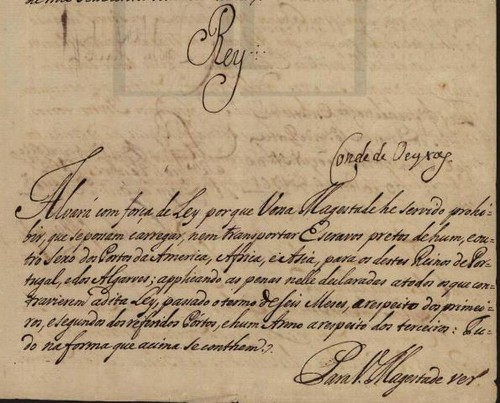 Rey
Conde de Oeyras
Alvará com força de Ley porque Vossa Magestade he servido prohi-
bir, que se possam carregar, nem transportar Escravos pretos de hum, e ou-
tro sexo dos Portos da America, Africa, e Asia, para os destes Reinos de Por-
tugal, e dos Algarves; applicando as penas nelle declaradas a todos os que con-
travierem a dita Ley, passado o termo de seis Mezes, a respeito dos primei-
ros, e segundos dos referidos Portos, e hum Anno a respeito dos terceiros: Tu-
do na forma que acima se conthem.
Para V. Magestade ver.